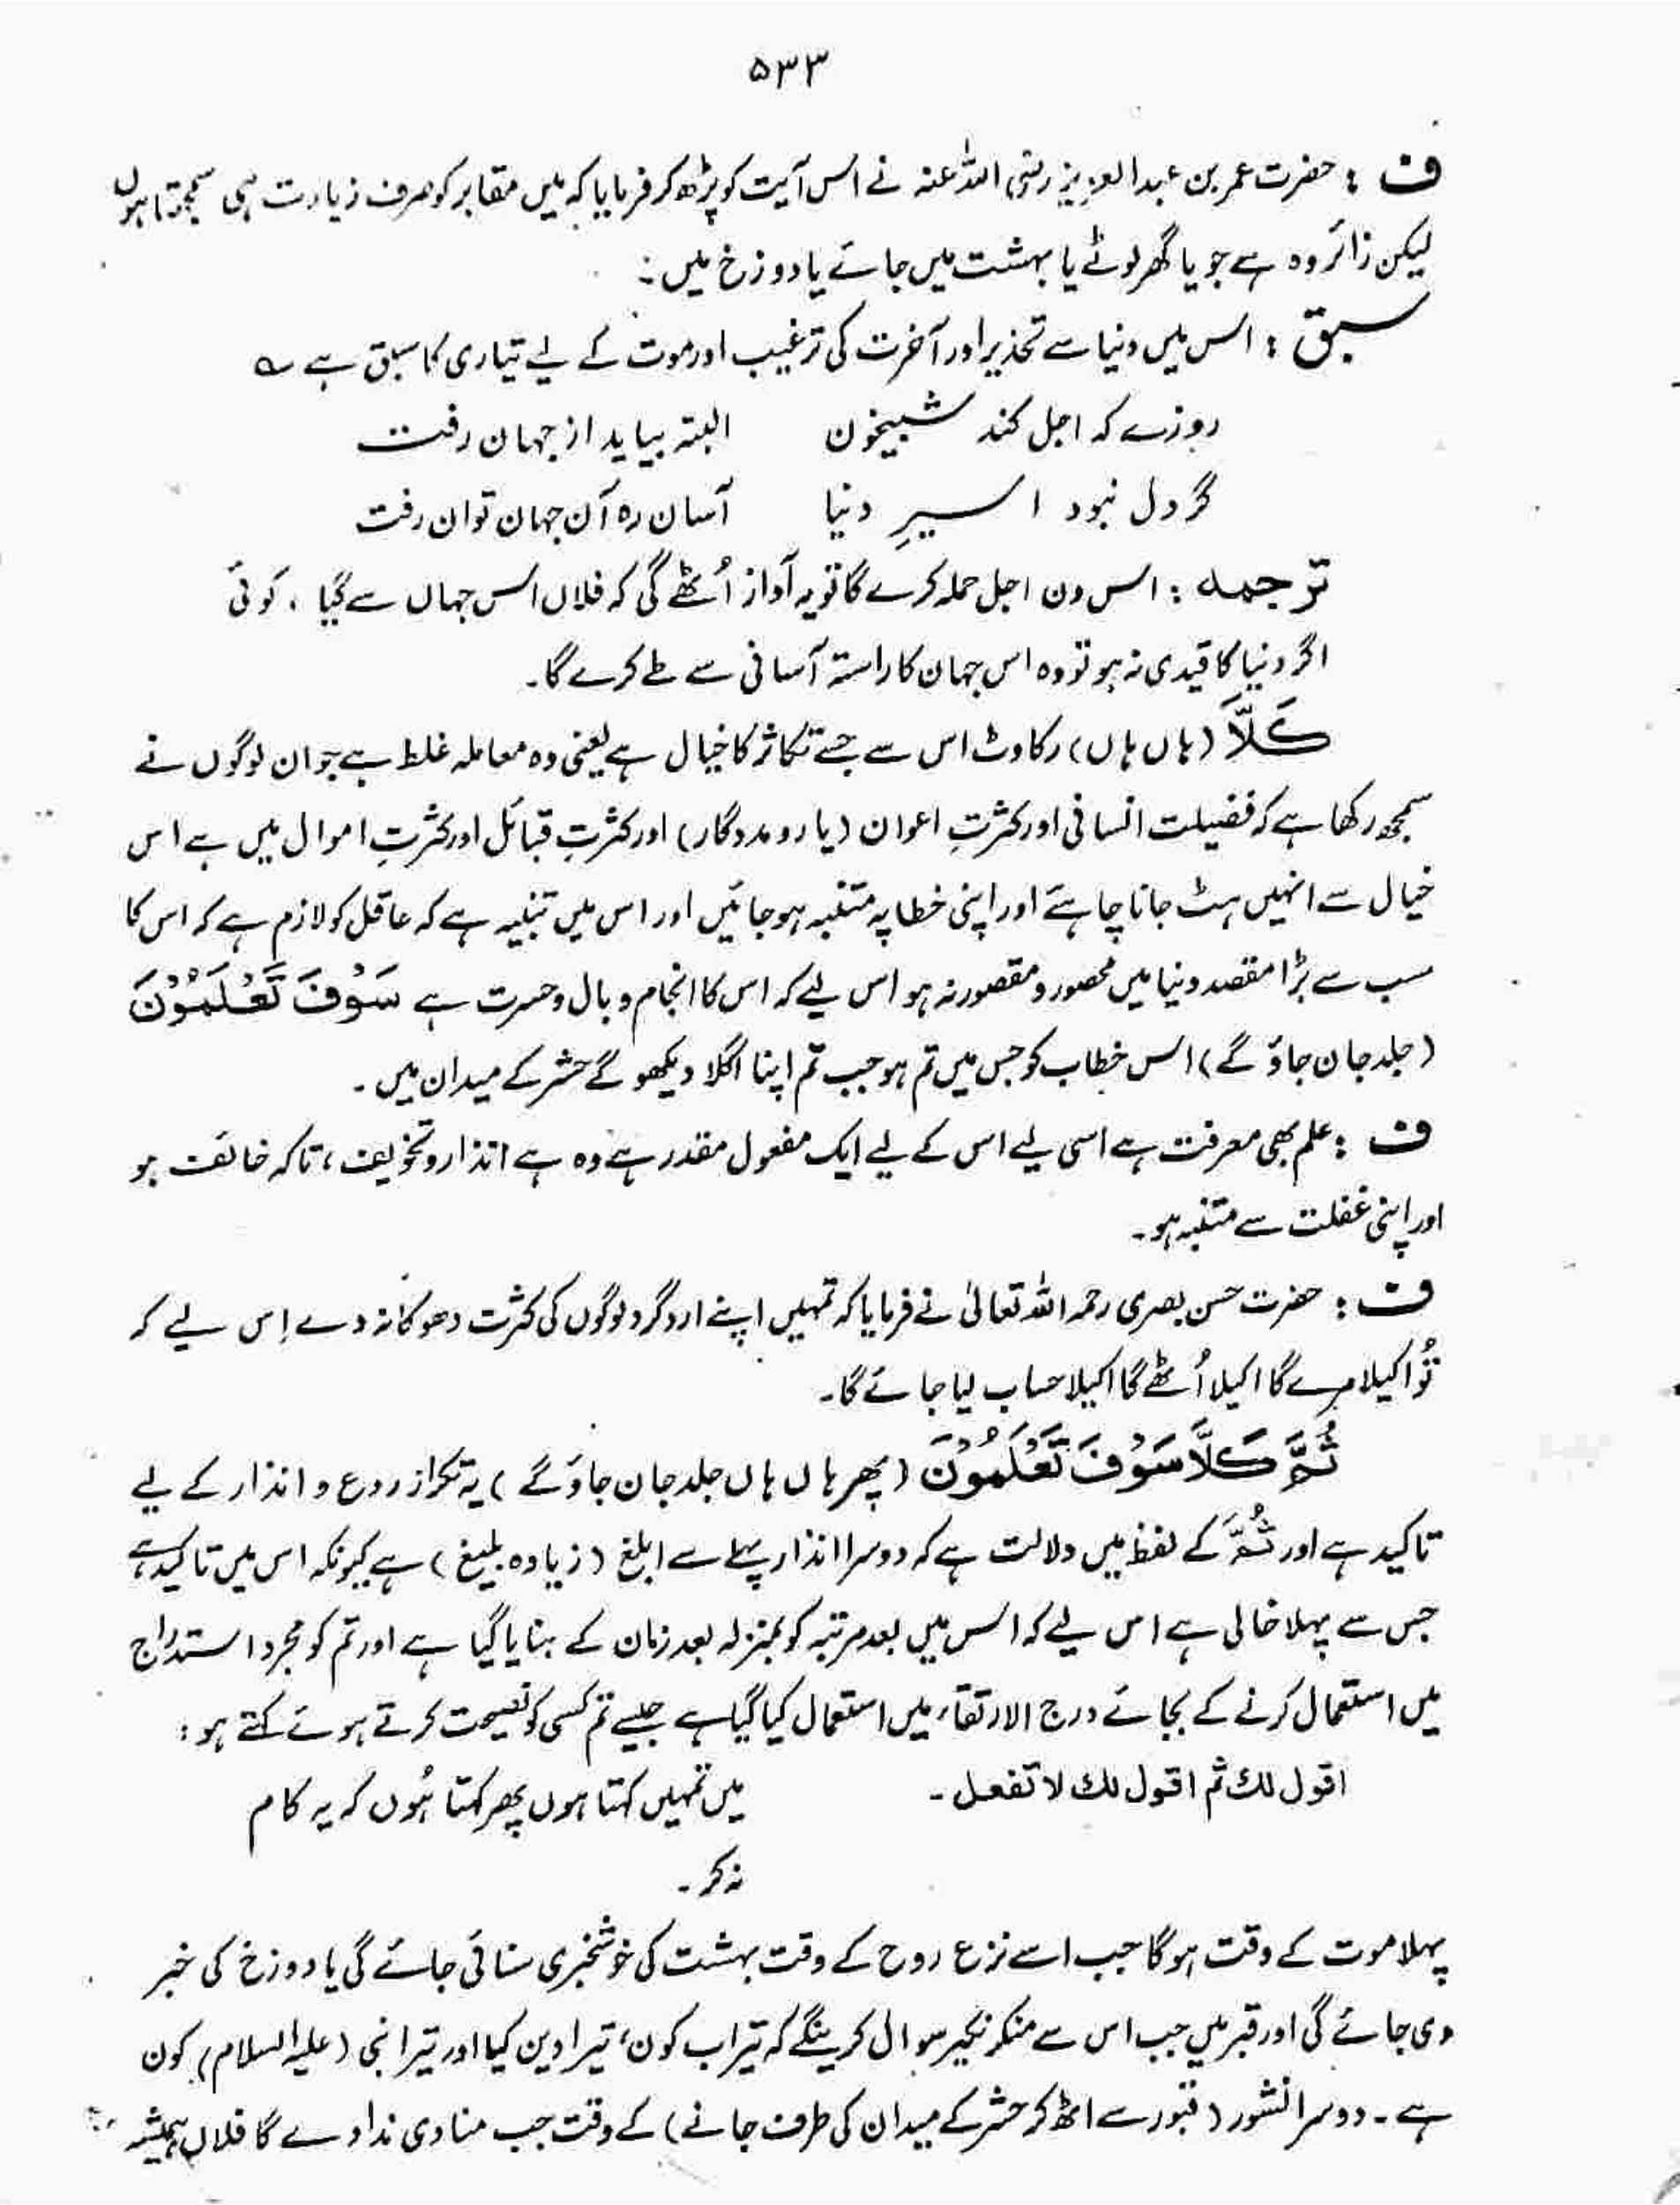 ۵۳۳
ف : حضرت عمر بن عبدالعزیز رضی اللہ عنہ نے اس آیت کو پڑھ کر فرمایا کہ میں مقابر کو صرف زیارت ہی سمجھتا ہوں
لیکن زائر وہ ہے جو یا گھر لوٹے یا بہشت میں جائے یا دوزخ میں :
سبق : اس میں دنیا سے تحذیر اور آخرت کی ترغیب اور موت کے لیے تیاری کا سبق ہے ؎
روزے کہ اجل کند شبیخون البتہ بیاید از جہان رفت
گر دل نبود اسیرِ دنیا آسان رہ آن جہان توان رفت
ترجمہ : اس دن اجل حملہ کرے گا تو یہ آواز اُٹھے گی کہ فلاں اس جہاں سے گیا ، کوئی
اگر دنیا کا قیدی نہ ہو تو وہ اس جہان کا راستہ آسانی سے طے کرے گا۔
كَلَّا (ہاں ہاں) رکاوٹ اس سے جسے تکاثر کا خیال ہے یعنی وہ معاملہ غلط ہے جو ان لوگوں نے
سمجھ رکھا ہے کہ فضیلت انسانی اور کثرتِ اعوان (یار و مددگار) اور کثرتِ قبائل اور کثرتِ اموال میں ہے اس
خیال سے انہیں ہٹ جانا چاہئے اور اپنی خطا پہ متنبہ ہو جائیں اور اس میں تنبیہ ہے کہ عاقل کو لازم ہے کہ اس کا
سب سے بڑا مقصد دنیا میں محصور و مقصور نہ ہو اس لیے کہ اس کا انجام وبال و حسرت ہے سَوْفَ تَعْلَمُوْنَ
(جلد جان جاؤ گے) اس خطاب کو جس میں تم ہو جب تم اپنا اگلا دیکھو گے حشر کے میدان میں ۔
ف : علم بھی معرفت ہے اسی لیے اس کے لیے ایک مفعول مقدر ہے وہ ہے انذار و تخویف ، تاکہ خائف ہو
اور اپنی غفلت سے متنبہ ہو۔
ف : حضرت حسن بصری رحمہ اللہ تعالیٰ نے فرمایا کہ تمہیں اپنے ارد گرد لوگوں کی کثرت دھوکا نہ دے اِس لیے کہ
تُو اکیلا مرے گا اکیلا اُٹھے گا اکیلا حساب لیا جائے گا۔
ثُمَّ كَلَّا سَوْفَ تَعْلَمُوْنَ (پھر ہاں ہاں جلد جان جاؤ گے) یہ تکرار ردع و انذار کے لیے
تاکید ہے اور ثُمَّ کے لفظ میں دلالت ہے کہ دوسرا انذار پہلے سے ابلغ (زیادہ بلیغ) ہے کیونکہ اس میں تاکید ہے
جس سے پہلا خالی ہے اس لیے کہ اس میں بعد مرتبہ کو بمنزلہ بعد زمان کے بنایا گیا ہے اور ثم کو مجرد استدراج
میں استعمال کرنے کے بجائے درج الارتقاء میں استعمال کیا گیا ہے جیسے تم کسی کو نصیحت کرتے ہوئے کہتے ہو :
اقول لك ثم اقول لك لا تفعل ۔ میں تمہیں کہتا ہوں پھر کہتا ہُوں کہ یہ کام
نہ کر ۔
پہلا موت کے وقت ہو گا جب اسے نزع روح کے وقت بہشت کی خوشخبری سنائی جائے گی یا دوزخ کی خبر
دی جائے گی اور قبر میں جب اس سے منکر نکیر سوال کرینگے کہ تیرا رب کون ، تیرا دین کیا اور تیرا نبی (علیہ السلام) کون
ہے ۔ دوسرا نشور (قبور سے اٹھ کر حشر کے میدان کی طرف جانے) کے وقت جب منادی ندا دے گا فلاں ہمیشہ